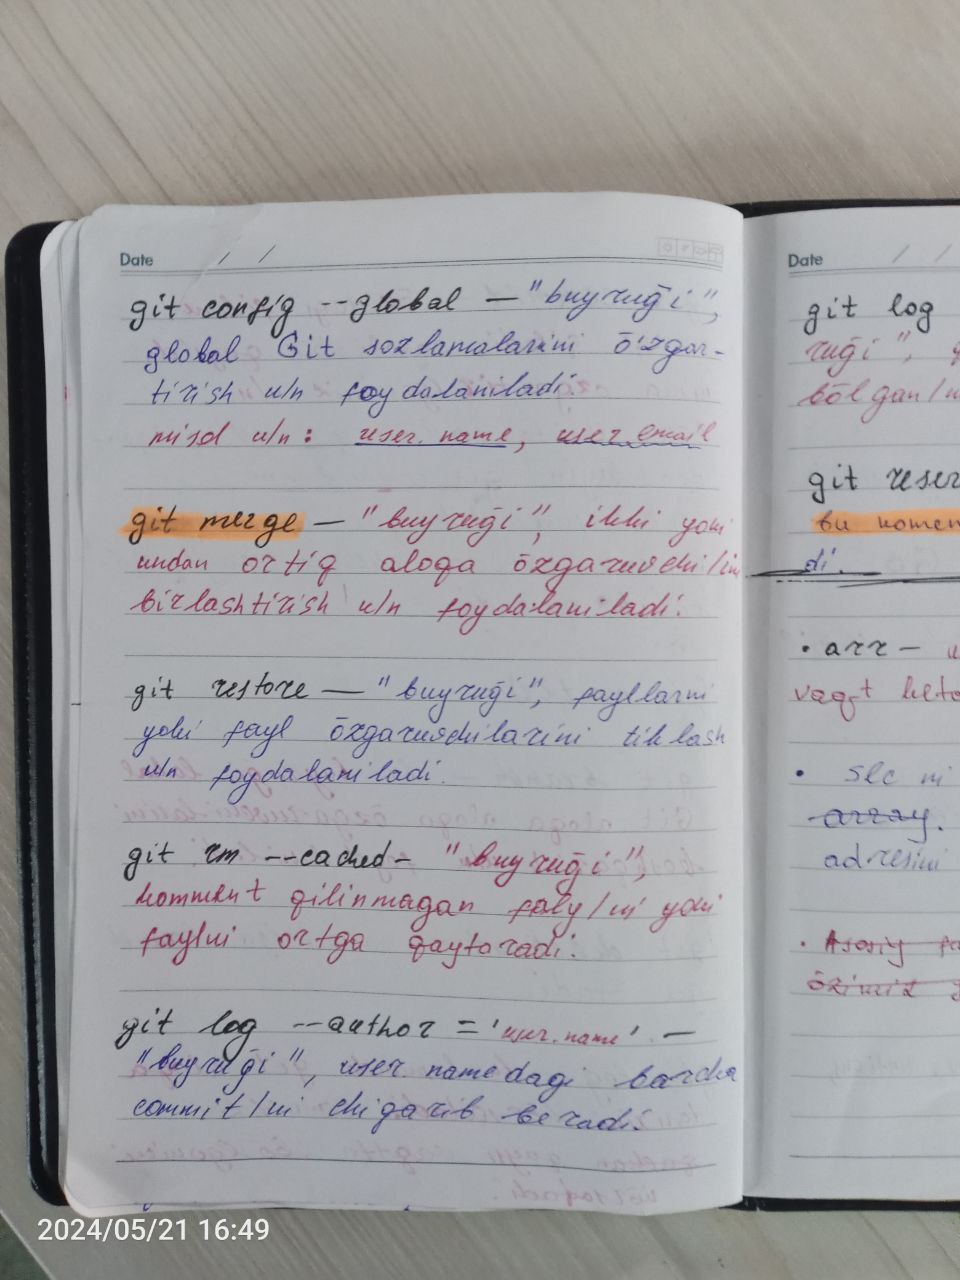 Date / /
git config --global — "buyrug̃i",
global Git sozlamalarini õzgar-
tirish u/n foydalaniladi.
misol u/n: user.name, user.email
git merge — "buyrug̃i", ikki yoki
undan ortiq aloqa õzgaruvchi/ini
birlashtirish u/n foydalaniladi.
git restore — "buyrug̃i", fayllarni
yoki fayl õzgaruvchilarini tiklash
u/n foydalaniladi.
git rm --cached - "buyrug̃i",
komment qilinmagan faly/ni yoki
faylni ortga qaytaradi.
git log --author = 'user.name' —
"buyrug̃i", user.namedagi barcha
commit/ni chiqarib beradi.
Date / /
git log
rug̃i",
bõlgan/
git reser
bu komen
di.
• arr —
vaqt keto
• slc ni
array.
adresini
• Asosiy fa
õzimiz
2024/05/21 16:49